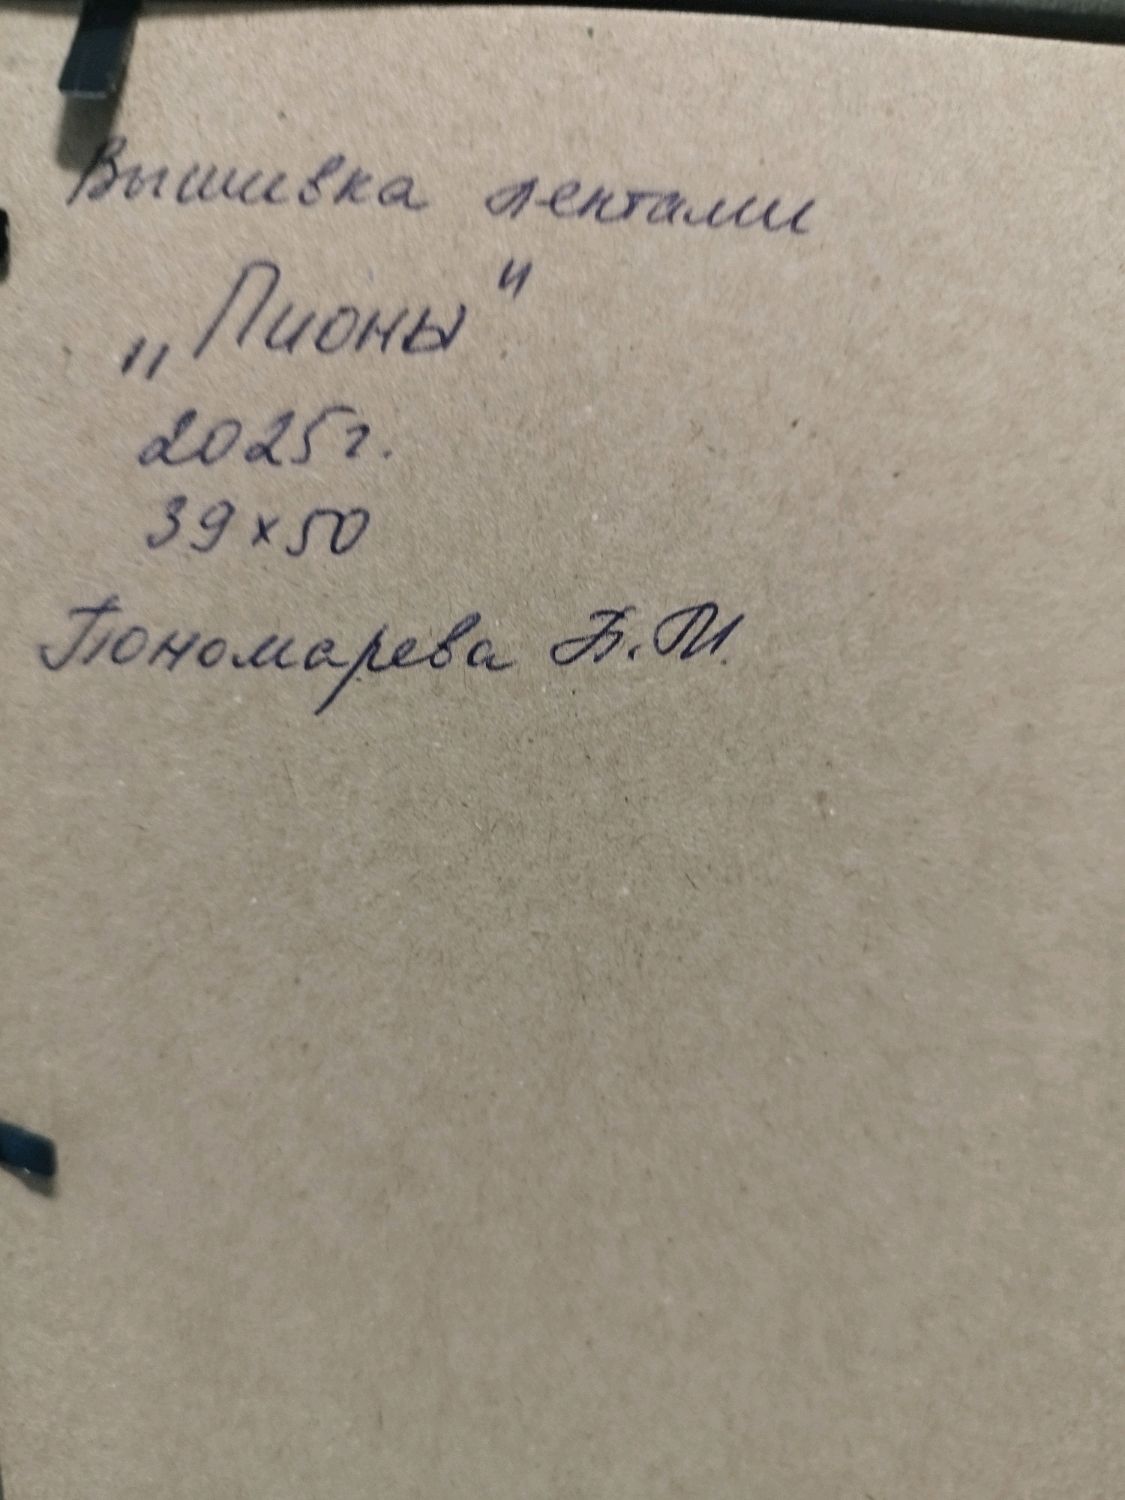 Вышивка лентами
„Пионы"
2025г.
39×50
Пономарева Б.П.